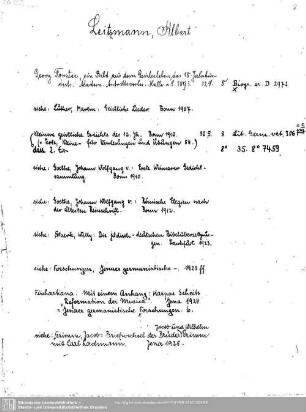 Leitzmann, Albert
Georg Forster, ein Bild aus dem Geistesleben des 18. Jahrhun-
derts. Halle a. S. 1893. 8° Biogr. er. D 2971
siehe: Luther, Martin: Geistliche Lieder. Bonn 1907.
Kleinere geistliche Gedichte des 12. Jh. Bonn 1910. 30 S. 8 Lit. Germ. vet. 306
(= Kleine Texte für Vorlesungen und Übungen 54.)
dass. 2. Ex. 8° 35. 8° 7459
siehe: Goethe, Johann Wolfgang v.: Erste Weimarer Gedicht-
sammlung. Bonn 1910.
siehe: Goethe, Johann Wolfgang v.: Römische Elegien nach
der ältesten Reinschrift. Bonn 1912.
siehe: Staerk, Willy: Die jüdisch-deutschen Bibelübersetzun-
gen. Frankfurt 1923.
siehe: Forschungen, Jenaer germanistische –. 1923 ff.
Fischartiana. Mit einem Anhang: Kaspar Scheits
"Reformation der Musica". Jena 1924
= Jenaer germanistische Forschungen. 6.
Jacob und Wilhelm
siehe: Grimm, Jacob: Briefwechsel der Brüder Grimm
mit Carl Lachmann Jena 1925.